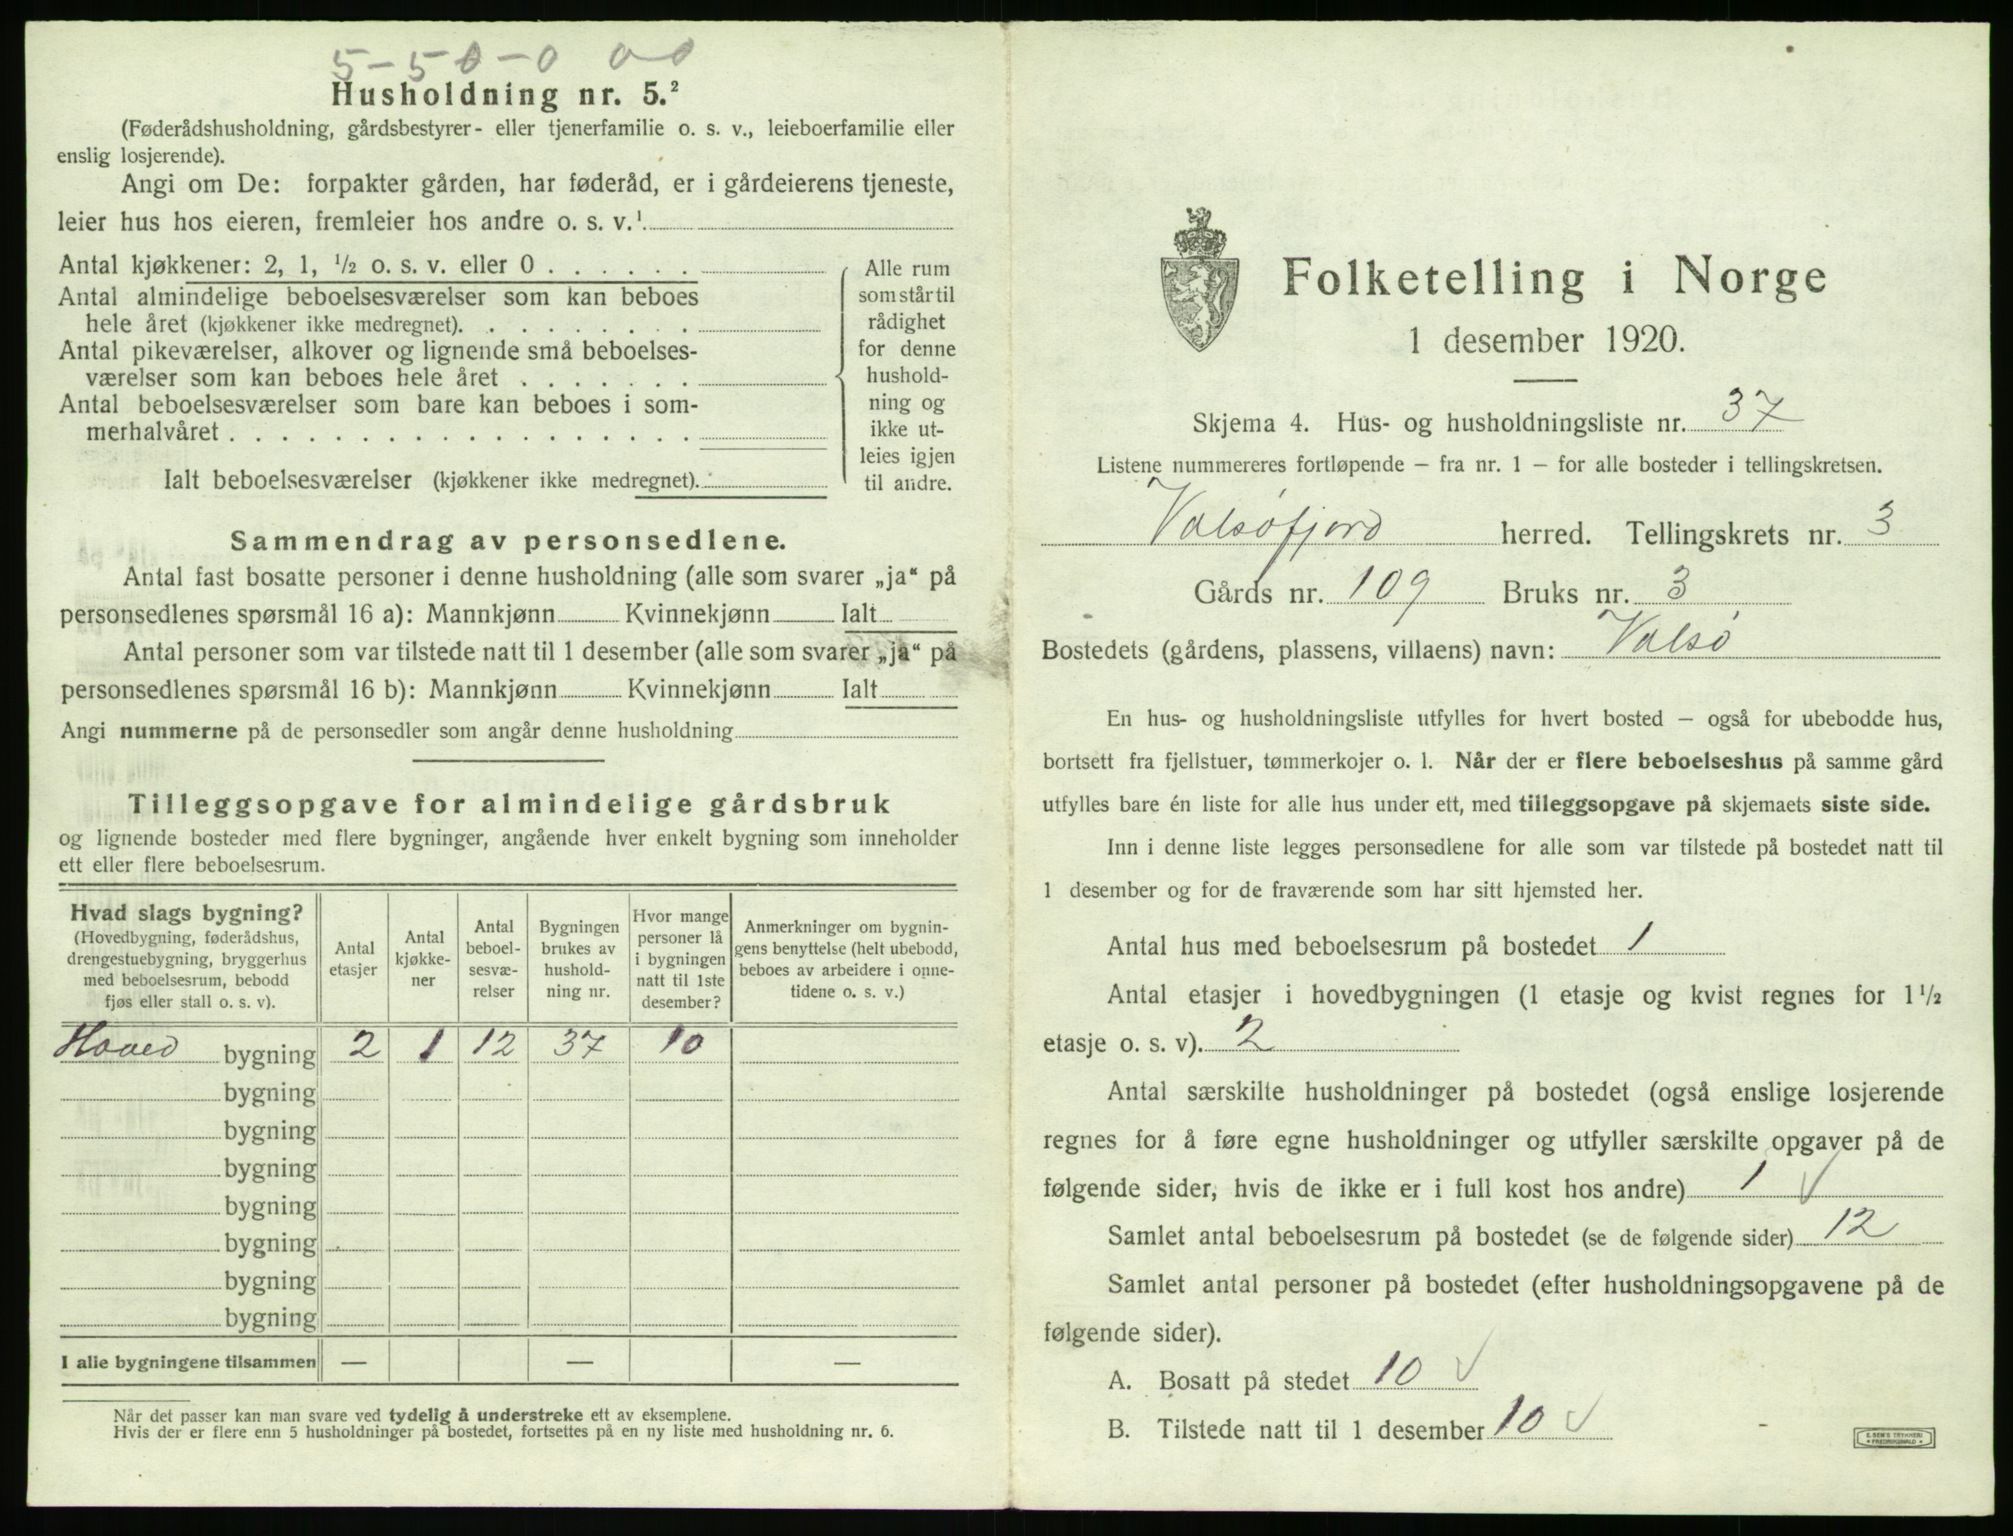 5-50-0 00
Husholdning nr. 5.²
(Føderådshusholdning, gårdsbestyrer- eller tjenerfamilie o. s. v., leieboerfamilie eller
enslig losjerende).
Angi om De: forpakter gården, har føderåd, er i gårdeierens tjeneste,
leier hus hos eieren, fremleier hos andre o. s. v.¹
Antal kjøkkener: 2, 1, ½ o. s. v. eller 0 . . . . . .
Antal almindelige beboelsesværelser som kan beboes
hele året (kjøkkener ikke medregnet). . . . . . . . .
Antal pikeværelser, alkover og lignende små beboelses-
værelser som kan beboes hele året . . . . . . .
Antal beboelsesværelser som bare kan beboes i som-
merhalvåret . . . . . . . . . . . . . . . . . .
Ialt beboelsesværelser (kjøkkener ikke medregnet).
Alle rum
som står til
rådighet
for denne
hushold-
ning og
ikke ut-
leies igjen
til andre.
Sammendrag av personsedlene.
Antal fast bosatte personer i denne husholdning (alle som svarer „ja“ på
personsedlenes spørsmål 16 a): Mannkjønn Kvinnekjønn Ialt
Antal personer som var tilstede natt til 1 desember (alle som svarer „ja“ på
personsedlenes spørsmål 16 b): Mannkjønn Kvinnekjønn Ialt
Angi nummerne på de personsedler som angår denne husholdning
Tilleggsopgave for almindelige gårdsbruk
og lignende bosteder med flere bygninger, angående hver enkelt bygning som inneholder
ett eller flere beboelsesrum.
Hvad slags bygning?
(Hovedbygning, føderådshus,
drengestuebygning, bryggerhus
med beboelsesrum, bebodd
fjøs eller stall o. s. v).
Antal
etasjer
Antal
kjøkke-
ner
Antal
beboel-
sesvæ-
relser
Bygningen
brukes av
hushold-
ning nr.
Hvor mange
personer lå
i bygningen
natt til 1ste
desember?
Anmerkninger om bygnin-
gens benyttelse (helt ubebodd,
beboes av arbeidere i onne-
tidene o. s. v.)
Hoved bygning 2 1 12 37 10
bygning
bygning
bygning
bygning
bygning
bygning
bygning
I alle bygningene tilsammen — — —
Når det passer kan man svare ved tydelig å understreke ett av eksemplene.
Hvis der er flere enn 5 husholdninger på bostedet, fortsettes på en ny liste med husholdning nr. 6.
Folketelling i Norge
1 desember 1920.
Skjema 4. Hus- og husholdningsliste nr. 37
Listene nummereres fortløpende — fra nr. 1 — for alle bosteder i tellingskretsen.
Valsøfjord herred. Tellingskrets nr. 3
Gårds nr. 109 Bruks nr. 3
Bostedets (gårdens, plassens, villaens) navn: Valsø
En hus- og husholdningsliste utfylles for hvert bosted — også for ubebodde hus,
bortsett fra fjellstuer, tømmerkojer o. l. Når der er flere beboelseshus på samme gård
utfylles bare én liste for alle hus under ett, med tilleggsopgave på skjemaets siste side.
Inn i denne liste legges personsedlene for alle som var tilstede på bostedet natt til
1 desember og for de fraværende som har sitt hjemsted her.
Antal hus med beboelsesrum på bostedet 1
Antal etasjer i hovedbygningen (1 etasje og kvist regnes for 1½
etasje o. s. v). 2
Antal særskilte husholdninger på bostedet (også enslige losjerende
regnes for å føre egne husholdninger og utfyller særskilte opgaver på de
følgende sider, hvis de ikke er i full kost hos andre) 1 ✓
Samlet antal beboelsesrum på bostedet (se de følgende sider) 12
Samlet antal personer på bostedet (efter husholdningsopgavene på de
følgende sider).
A. Bosatt på stedet 10 ✓
B. Tilstede natt til 1 desember 10 ✓